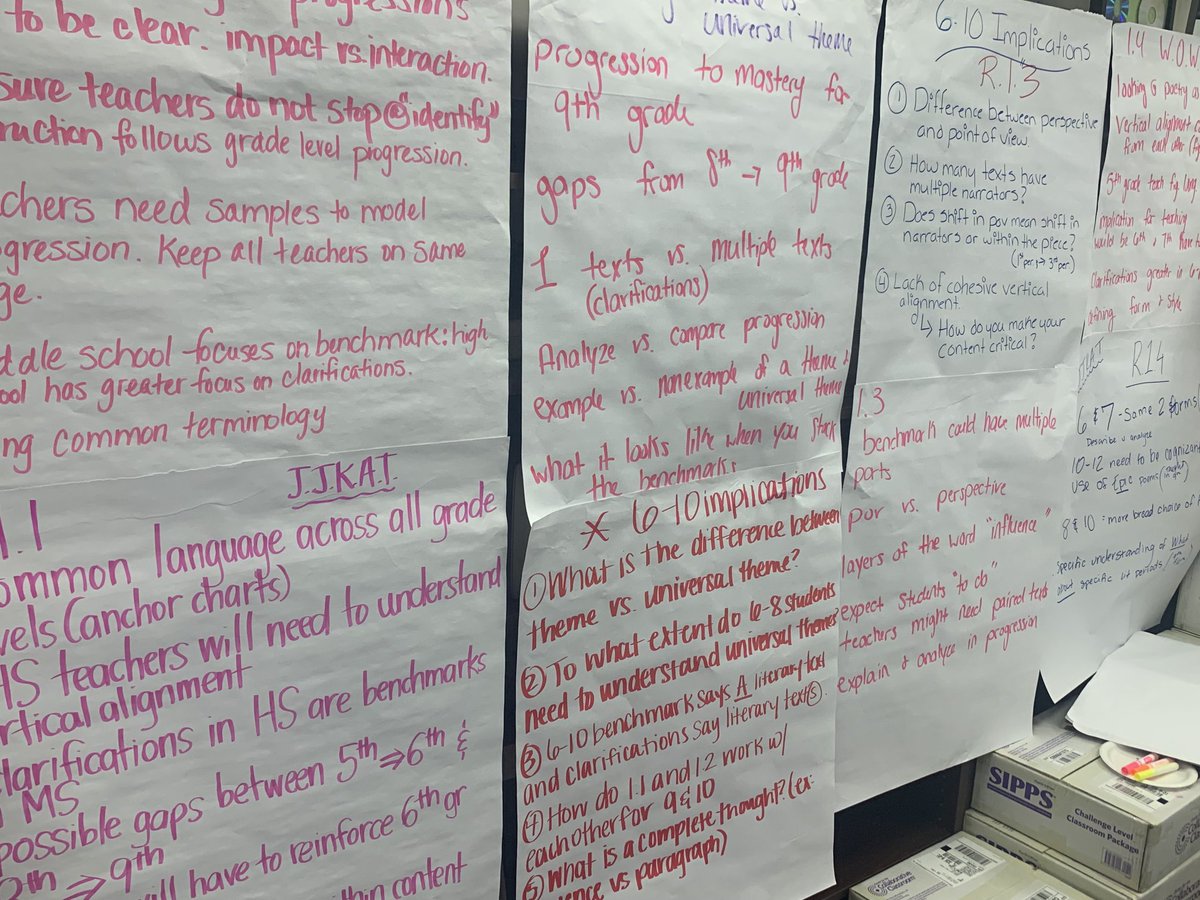 progressions
to be clear. impact vs. interaction.
sure teachers do not stop @ "identify"
ruction follows grade level progression.
chers need samples to model
gression. Keep all teachers on same
ge.
ddle school focuses on benchmark: high
ool has greater focus on clarifications.
ng common terminology
J.J.K.A.T.
1.1
ommon language across all grade
vels (anchor charts)
HS teachers will need to understand
rtical alignment
larifications in HS are benchmarks
MS
possible gaps between 5th ⇒ 6th &
8th ⇒ 9th
will have to reinforce 6th gr
within content
vs.
universal theme
progression to mastery for
9th grade
gaps from 8th → 9th grade
1 texts vs. multiple texts
(clarifications)
Analyze vs. compare progression
example vs. nonexample of a theme &
universal theme
what it looks like when you stack
the benchmarks
* 6-10 implications
① What is the difference between
theme vs. universal theme?
② To what extent do 6-8 students
need to understand universal themes?
③ 6-10 benchmark says A literary text
and clarifications say literary text(s).
④ How do 1.1 and 1.2 work w/
each other for 9 & 10
⑤ What is a complete thought? (ex:
ence vs paragraph)
6-10 Implications
R.1.3
① Difference between perspective
and point of view.
② How many texts have
multiple narrators?
③ Does shift in pov mean shift in
narrators or within the piece?
(1st per. → 3rd per.)
④ Lack of cohesive vertical
alignment.
↳ How do you make your
content critical?
1.3
benchmark could have multiple
parts
pov vs. perspective
layers of the word "influence"
expect students "to do"
teachers might need paired texts
explain & analyze in progression
1.4 W.O.W
looking @ poetry as
vertical alignment
from each other
5th grade teach fig lang
implication for teaching
would be 6th & 7th
clarifications greater in
defining form & style
R14
6 & 7 - Same 2 forms
Describe v analyze
10-12 need to be cognizant
use of Epic poems
8 & 10 = more broad choice of
specific understanding of what
specific lit periods
SIPPS
Challenge Level
Classroom Package
SIPPS
Collaborative
Classroom